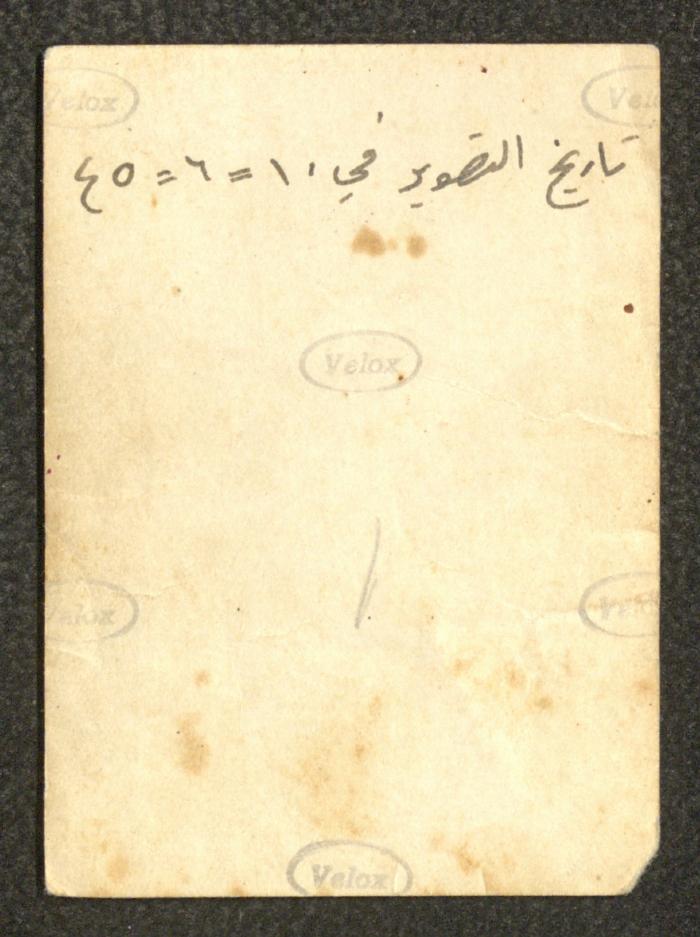 Velox Vel
تاريخ التصوير في ١٠ = ٦ = ٤٥
Velox
١
Velox Velo
Velox